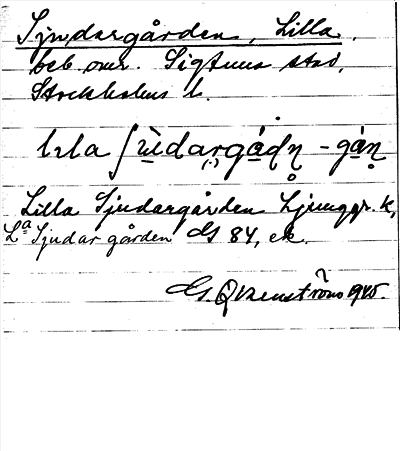 Sjudargården, Lilla.
beb. omr. Sigtuna stad,
Stockholms l.
Lilla Sjudargården Ljunggr. k,
Lª Sjudargården GS 84, ek.
G. Qvenström 1945.